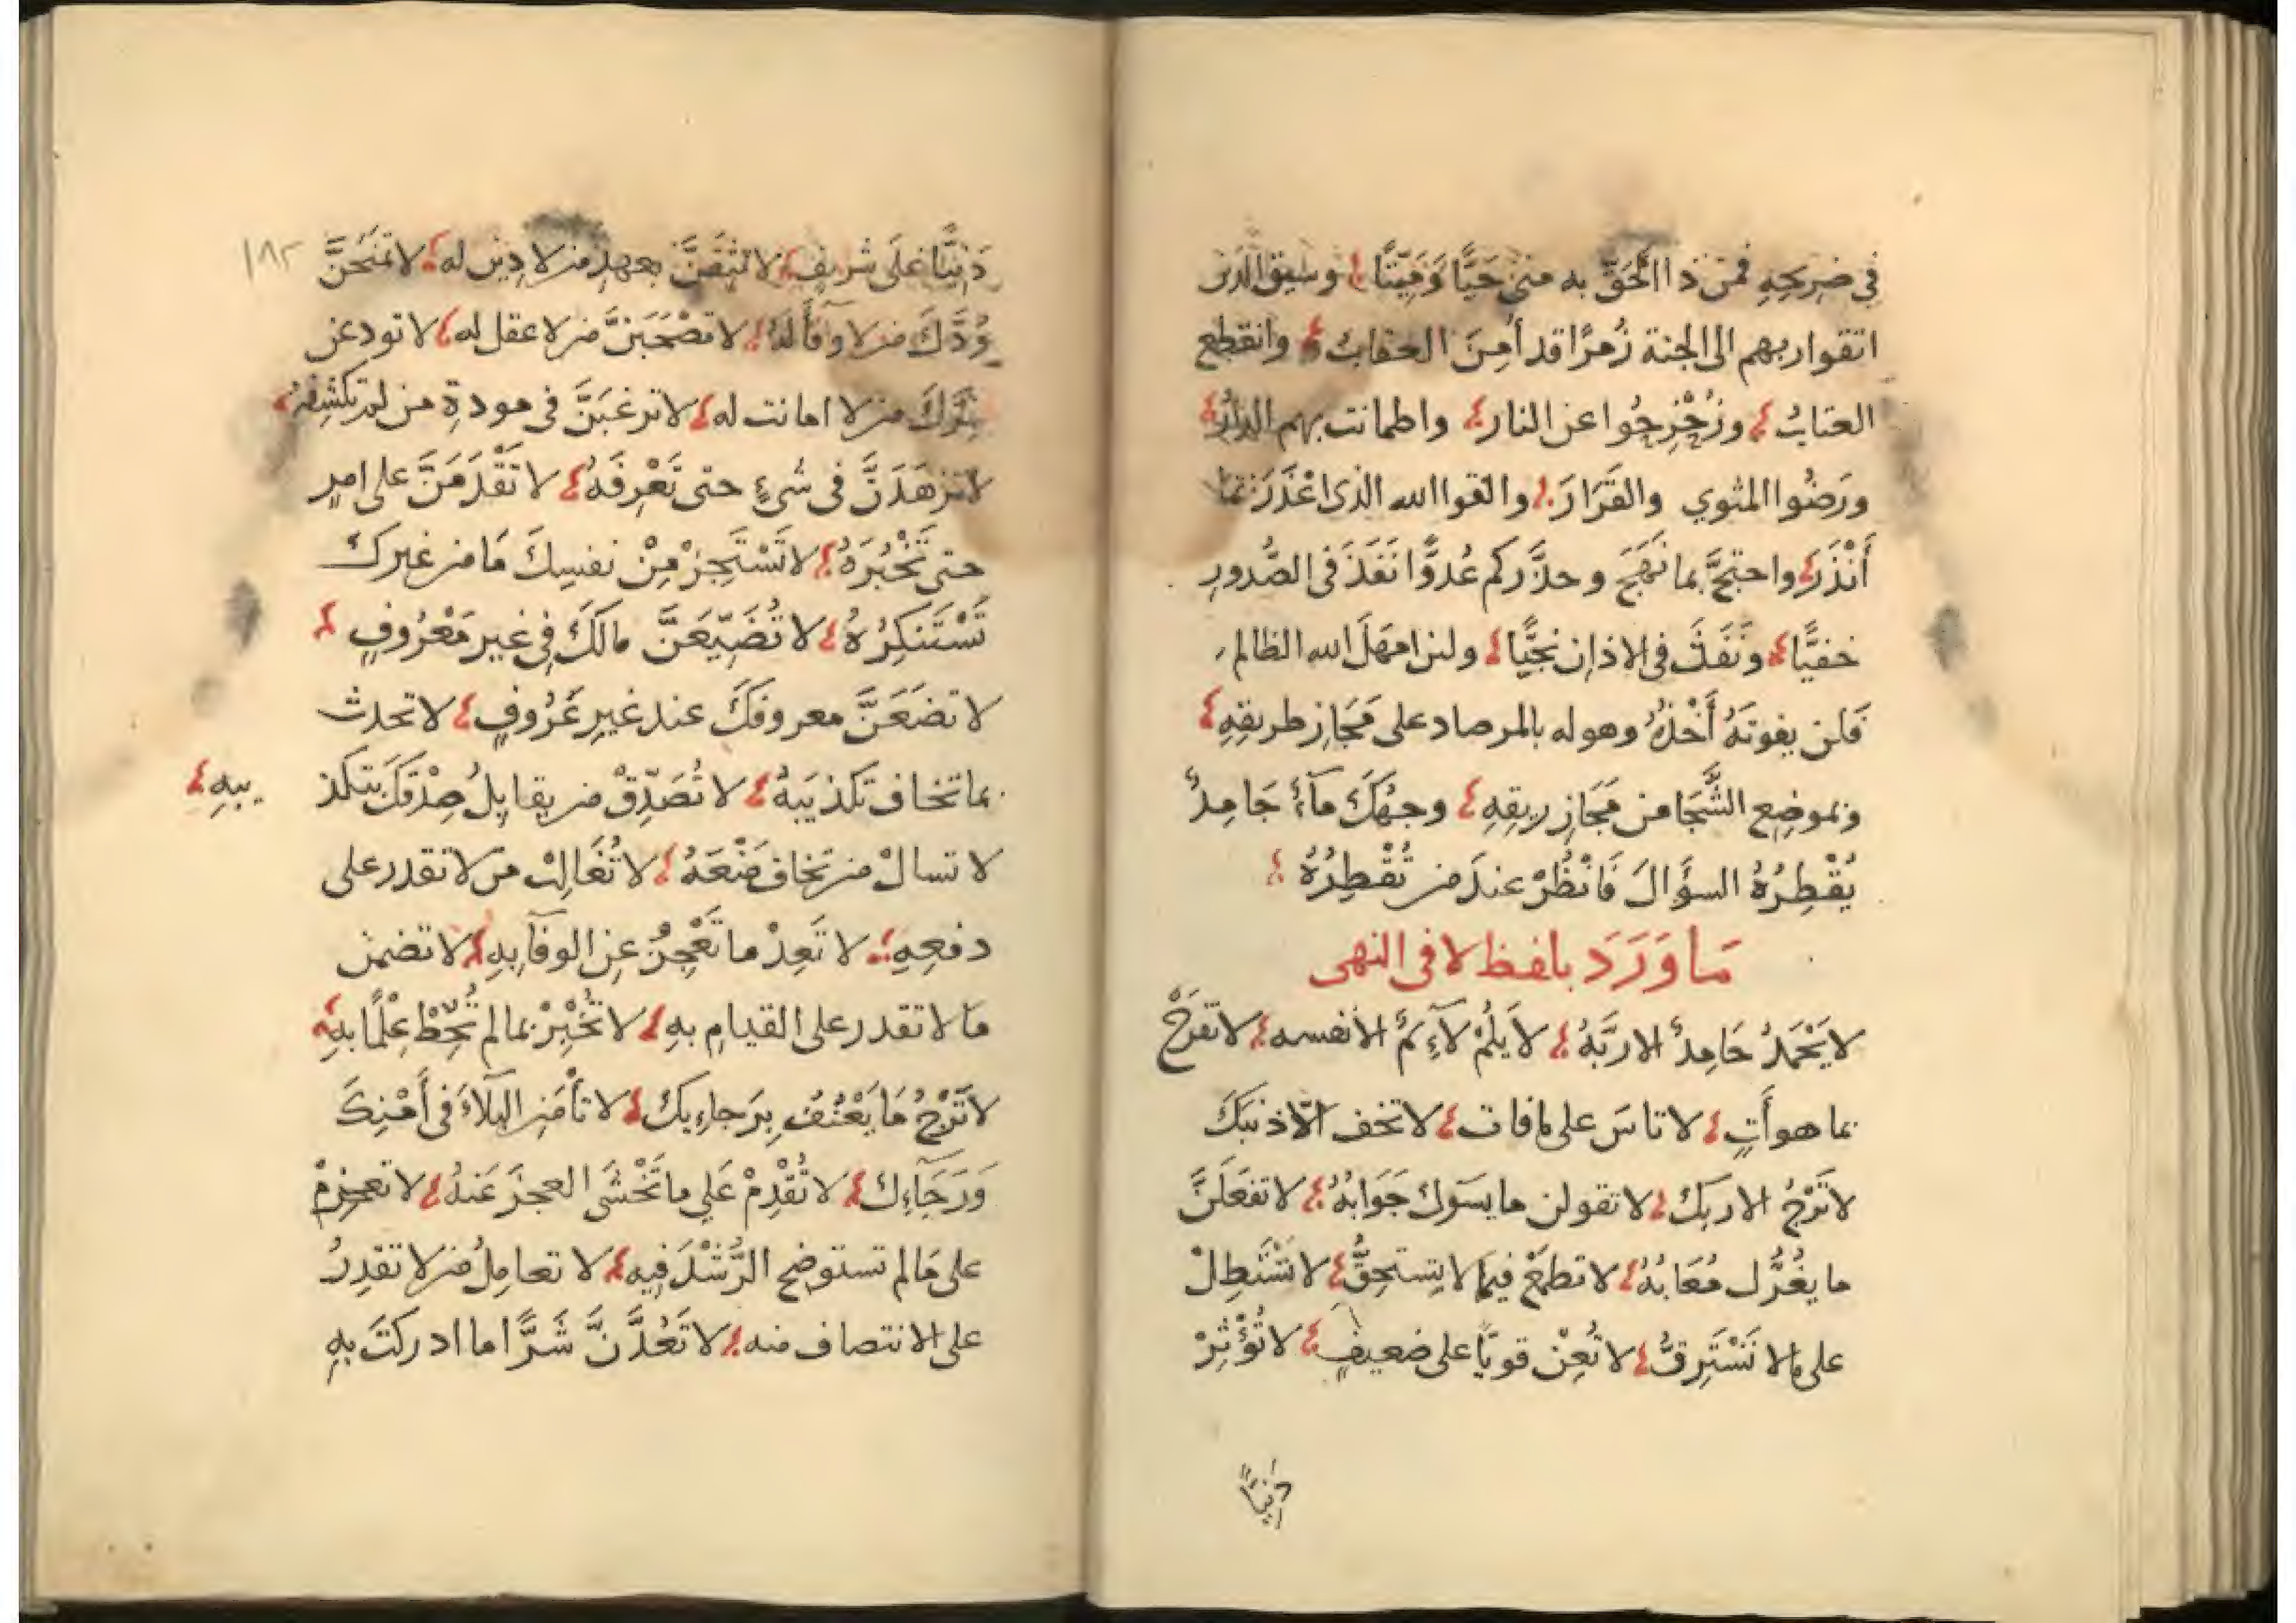 في ضريحه فمن ذا الحق به مني حيًّا وَمَيّتًا وسيق الذين
اتقوا ربهم الى الجنة زُمرًا قد أمِنَ العقابُ وانقطع
العتابُ وزُحْزِحُوا عن النار واطمانت بهم الدارُ
ورَضُوا المثوي والقَرَارَ والقوا الله الذي اعْذَرَ بما
أَنْذَرَ واحتجَّ بما نَهَجَ وحذَّركم عُدوًّا نَفَذَ في الصُّدورِ
خفيًّا ونَفَثَ في الاذان نجيًّا ولئن امهَلَ الله الظالم
فَلن يفوتَهُ أَخْذُهُ وهو له بالمرصاد على مَجَازِ طريقِهِ
وبموضِعِ الشَّجَا من مَجَازِ ريقِهِ وجهُكَ مآءٌ جَامِدٌ
يُقْطِرُهُ السؤَالَ فَانْظُرْ عندَ من تُقْطِرُهُ
مَا وَرَدَ بلفظ لا في النهى
لا يَحْمَدُ حَامِدٌ الا ربَّهُ لا يَلُمْ لآئِمٌ الا نفسه لا تفرَحْ
بما هو أَتٍ لا تاسَ على ما فات لا تخف الّا ذنبكَ
لا تَرْجُ الا ربكَ لا تقولن ما يسوك جَوَابُهُ لا تفعَلَنَّ
ما يغُرُّك مُعَابُهُ لا تطمَعْ فيما لا يستحِقُّ لا تَسْتَطِلْ
على ما لا تَسْتَرِقُّ لا تُعِنْ قويًّا على ضعيفٍ لا تُؤْثِرْ
دَنيًّا
١٨٢
دَنيًّا عَلَى شريفٍ لا تثِقَنَّ بعهدِ من لا دِين له لا تمنَحَنَّ
وُدَّكَ من لا وفآ لَهُ لا تصْحَبَنَّ من لا عقل له لا تودعن
سِرَّكَ من لا امانت له لا ترغبَنَّ في مودةِ من لم تكشفهُ
لا تزهَدَنَّ في شيءٍ حتى تَعْرِفَهُ لا تَقْدَمَنَّ على امرٍ
حتى تَخْبُرَهُ لا تَسْتَجِزْ مِنْ نفسِكَ مَا من غيرك
تَسْتَنكِرُهُ لا تُضَيّعَنَّ مالَكَ في غير مَعْرُوفٍ
لا تضَعَنَّ معروفكَ عند غيرِ عَرُوفٍ لا تحدث
بما تخاف تكذيبَهُ لا تُصَدِّقْ من يقابلُ صِدْقَكَ بتكذ
يبهِ
لا تسالْ من تخاف مَنْعَهُ لا تُغَالِبْ من لا تقدر على
دفعِهِ لا تَعِدْ ما تَعْجِزُ عن الوفآ بهِ لا تضمن
مَا لا تقدر على القيامِ بهِ لا تُخْبِرْ بما لم تُحِّطْ عِلْمًا بهِ
لا تَرْجُ مَا يَعْنُفُ بِرَجاءِيكَ لا تأمَنِ البلآءَ في أَمْنِكَ
وَرَجَآءِكَ لا تُقْدِمْ عَلي ما تَخْشَى العجزَ عَنهُ لا تعزمْ
على مَا لم تستوضحِ الرُّشْدَ فِيهِ لا تعامِلْ من لا تقدِرُ
على الانتصاف منه لا تَعُدَّنَّ شَرًّا ما ادركتَ بهِ